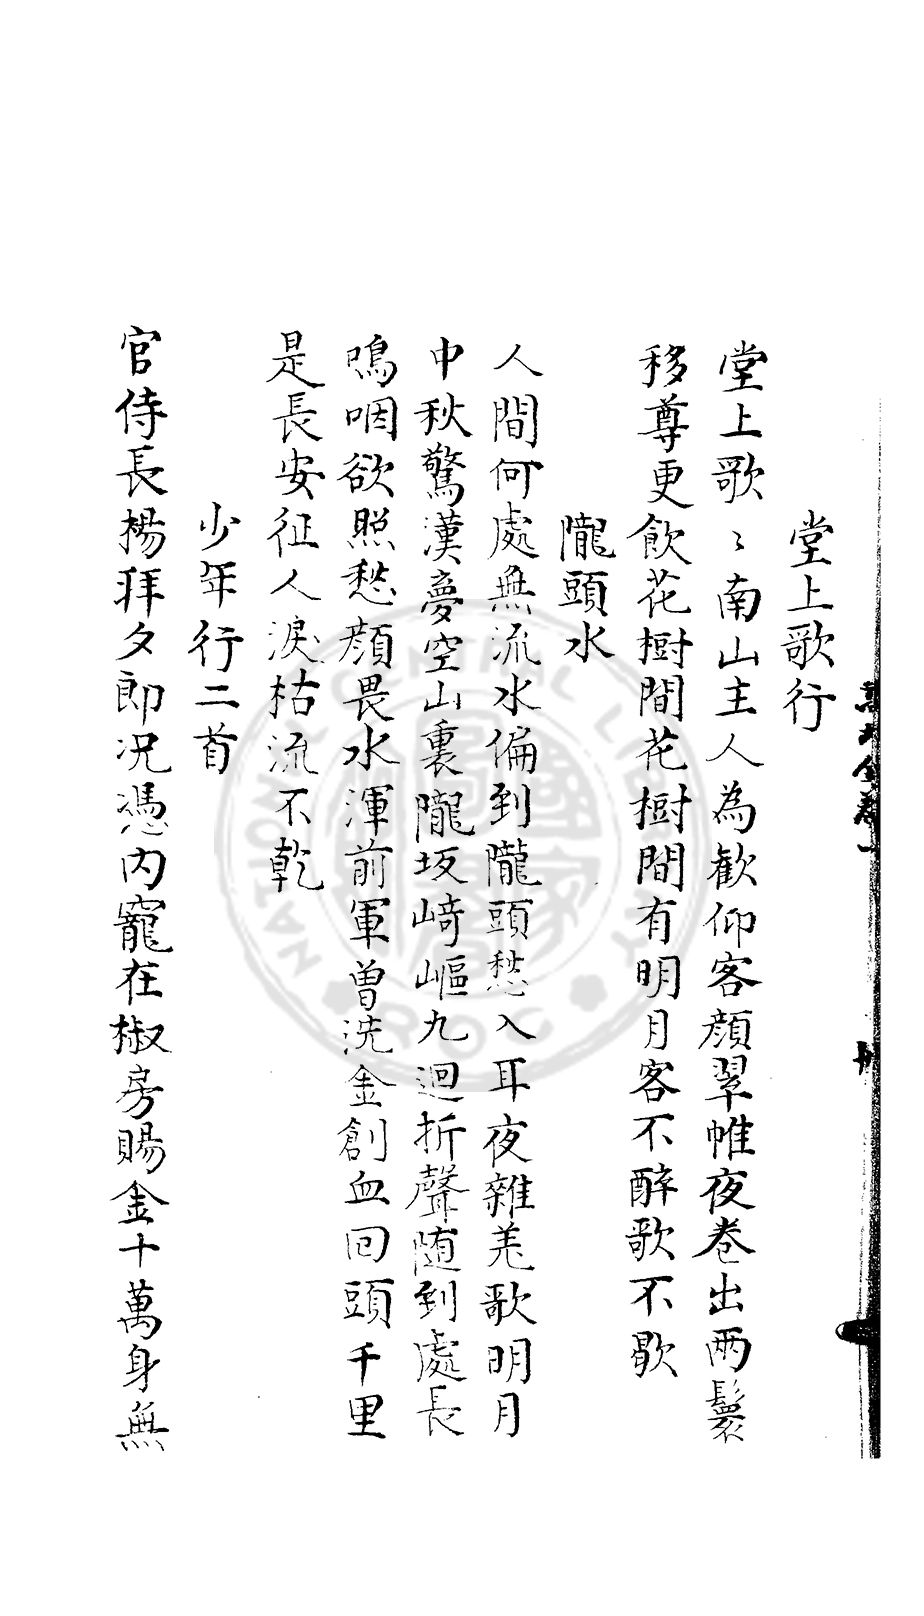 堂上歌行
堂上歌〻南山主人為歡仰客顔翠帷夜卷出兩鬟
移尊更飲花樹間花樹間有明月客不醉歌不歇
隴頭水
人間何處無流水偏到隴頭愁入耳夜雜羌歌明月
中秋驚漢夢空山裏隴坂崎嶇九迴折聲随到處長
鳴咽欲照愁顔畏水渾前軍曾洗金創血回頭千里
是長安征人淚枯流不乾
少年行二首
官侍長楊拜夕郎况馮內寵在椒房賜金十萬身無
NATIONAL CENTRAL LIBRARY R.O.C.
國家圖書